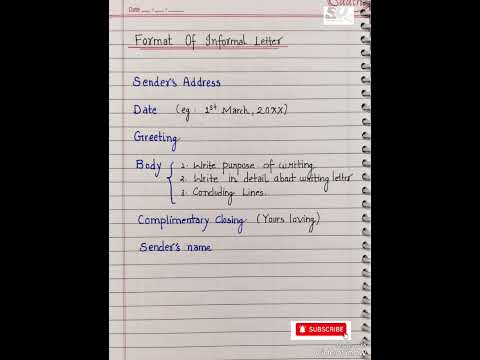 Date
Format Of Informal Letter
Sender's Address
Date (eg: 1st March, 20XX)
Greeting
Body
1. Write purpose of writing
2. Write in detail about writing letter
3. Concluding Lines.
Complimentary Closing (Yours loving)
Sender's name
SUBSCRIBE